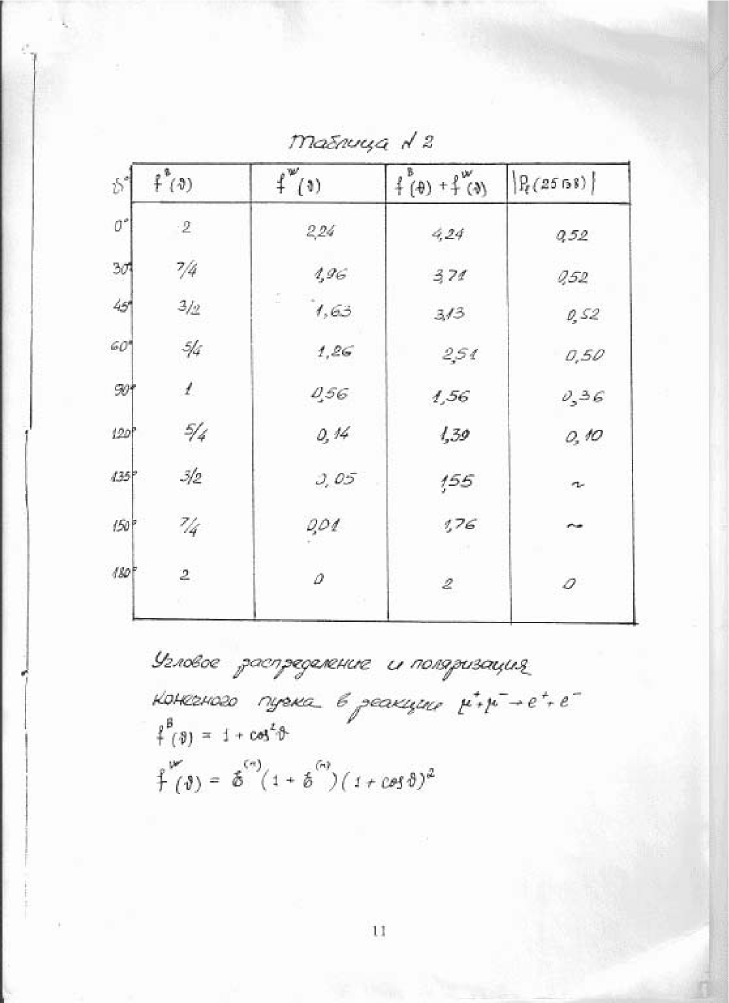 Таблица N 2
ϑ° f^B(ϑ) f^W(ϑ) f^B(ϑ) + f^W(ϑ) |P_f(25 ГэВ)|
0° 2 2,24 4,24 0,52
30° 7/4 1,96 3,71 0,52
45° 3/2 1,63 3,13 0,52
60° 5/4 1,26 2,51 0,50
90° 1 0,56 1,56 0,36
120° 5/4 0,14 1,39 0,10
135° 3/2 0,05 1,55 ~
150° 7/4 0,01 1,76 ~
180° 2 0 2 0
Угловое распределение и поляризация
конечного пучка в реакции μ⁺+μ⁻→e⁺+e⁻
f^B(ϑ) = 1 + cos²ϑ
f^W(ϑ) = ᘔ^(n)(1 + ᘔ^(n))(1 + cosϑ)²
11